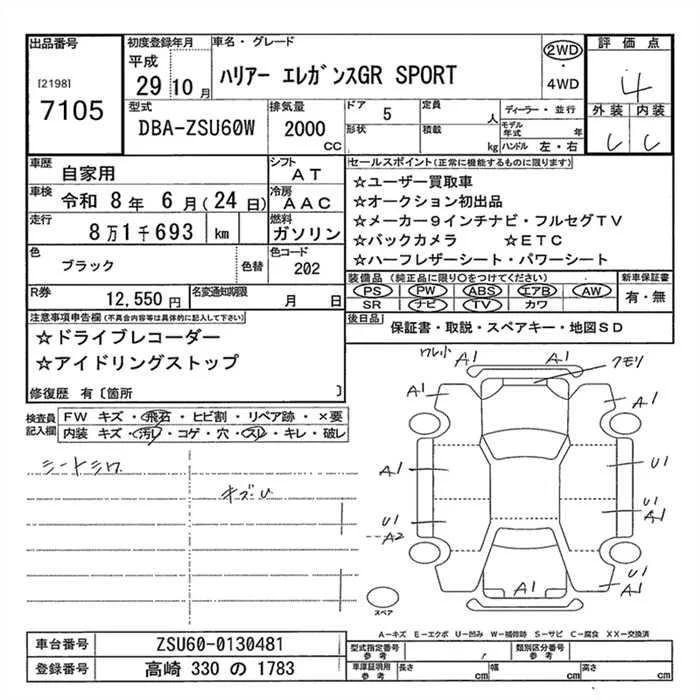 出品番号
[2198]
7105
初度登録年月
平成
29 10 月
車名・グレード
ハリアー エレガンスGR SPORT
2WD
・
4WD
評価点
4
外装 内装
C C
型式
DBA-ZSU60W
排気量
2000
CC
ドア 5
形状
定員 人
積載 kg
ディーラー・並行
モデル年式 年
ハンドル 左・右
車歴 自家用
シフト AT
車検 令和 8 年 6 月(24 日)
冷房 AAC
走行 8万1千693 km
燃料 ガソリン
色 ブラック 色替
色コード 202
R券 12,550 円
名変通知期限 月 日
セールスポイント(正常に機能するものに限ります)
☆ユーザー買取車
☆オークション初出品
☆メーカー9インチナビ・フルセグTV
☆バックカメラ ☆ETC
☆ハーフレザーシート・パワーシート
装備品 (純正品に限り○をつけてください)
PS PW ABS エアB AW
SR ナビ TV カワ
新車保証書
有・無
後日品 保証書・取説・スペアキー・地図SD
注意事項申告欄(不具合内容等は具体的に記入して下さい)
☆ドライブレコーダー
☆アイドリングストップ
修復歴 有〔箇所 〕
検査員記入欄
FW キズ・飛石・ヒビ割・リペア跡・×要
内装 キズ・汚レ・コゲ・穴・スレ・キレ・破レ
シートシワ
キズU
ワレ小 A1 A1 クモリ
A1 A1
A1 U1
U1 U1
A2 A1
A1 U1
A1
スペア
A-キズ E-エクボ U-凹み W-補修跡 S-サビ C-腐食 XX-交換済
車台番号 ZSU60-0130481
登録番号 高崎 330 の 1783
型式指定番号 参考
類別区分番号 参考
車庫証明用 参考 長さ cm 幅 cm 高さ cm